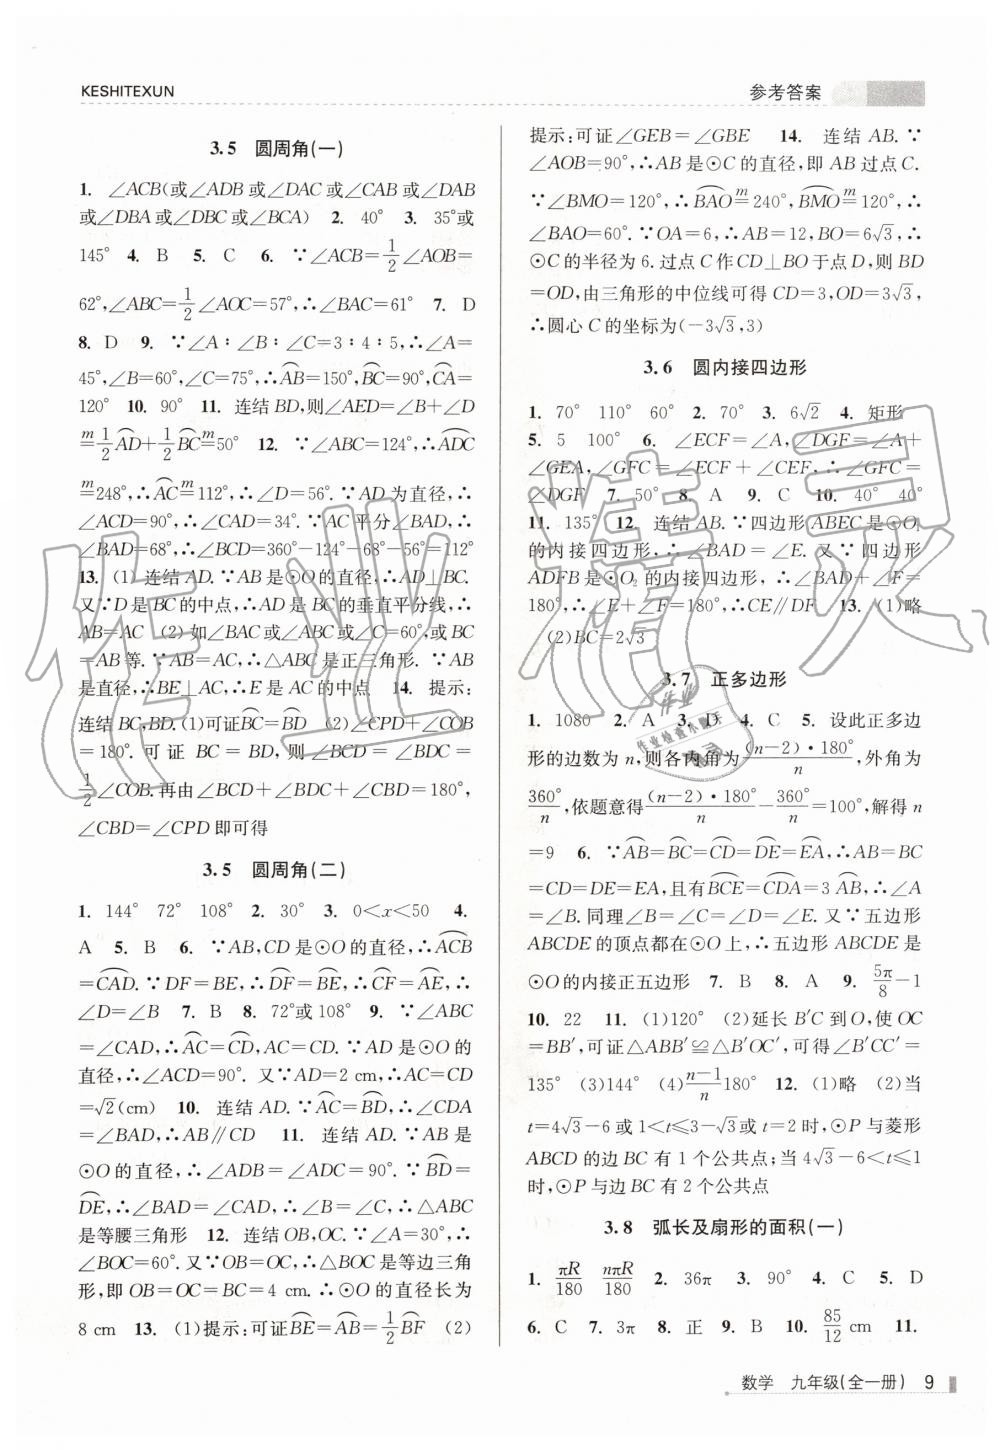 KESHITEXUN
参考答案
3.5 圆周角(一)
1. ∠ACB(或∠ADB 或∠DAC 或∠CAB 或∠DAB
或∠DBA 或∠DBC 或∠BCA) 2. 40° 3. 35°或
145° 4. B 5. C 6. ∵∠ACB=1/2∠AOB=
62°,∠ABC=1/2∠AOC=57°,∴∠BAC=61° 7. D
8. D 9. ∵∠A∶∠B∶∠C=3∶4∶5,∴∠A=
45°,∠B=60°,∠C=75°,∴AB⌒=150°,BC⌒=90°,CA⌒=
120° 10. 90° 11. 连结 BD,则∠AED=∠B+∠D
m=1/2AD⌒+1/2BC⌒m=50° 12. ∵∠ABC=124°,∴ADC⌒
m=248°,∴AC⌒m=112°,∴∠D=56°. ∵AD 为直径,∴
∠ACD=90°,∴∠CAD=34°. ∵AC 平分∠BAD,∴
∠BAD=68°,∴∠BCD=360°-124°-68°-56°=112°
13. (1) 连结 AD. ∵AB 是⊙O 的直径,∴AD⊥BC.
又∵D 是 BC 的中点,∴AD 是 BC 的垂直平分线,∴
AB=AC (2) 如∠BAC 或∠ABC 或∠C=60°,或 BC
=AB 等. ∵AB=AC,∴△ABC 是正三角形. ∵AB
是直径,∴BE⊥AC,∴E 是 AC 的中点 14. 提示:
连结 BC,BD. (1)可证BC⌒=BD⌒ (2)∠CPD+∠COB
=180°. 可证 BC=BD,则∠BCD=∠BDC=
1/2∠COB. 再由∠BCD+∠BDC+∠CBD=180°,
∠CBD=∠CPD 即可得
3.5 圆周角(二)
1. 144° 72° 108° 2. 30° 3. 0<x<50 4.
A 5. B 6. ∵AB,CD 是⊙O 的直径,∴ACB⌒
=CAD⌒. ∵DF=BE,∴DF⌒=BE⌒,∴CF⌒=AE⌒,∴
∠D=∠B 7. B 8. 72°或 108° 9. ∵∠ABC
=∠CAD,∴AC⌒=CD⌒,AC=CD. ∵AD 是⊙O 的
直径,∴∠ACD=90°. 又∵AD=2 cm,∴AC=CD
=√2(cm) 10. 连结 AD. ∵AC⌒=BD⌒,∴∠CDA
=∠BAD,∴AB∥CD 11. 连结 AD. ∵AB 是
⊙O 的直径,∴∠ADB=∠ADC=90°. ∵BD⌒=
DE⌒,∴∠BAD=∠CAD,∴∠B=∠C,∴△ABC
是等腰三角形 12. 连结 OB,OC. ∵∠A=30°,∴
∠BOC=60°. 又∵OB=OC,∴△OBC 是等边三角
形,即 OB=OC=BC=4 cm. ∴⊙O 的直径长为
8 cm 13. (1)提示:可证BE⌒=AB⌒=1/2BF⌒ (2)
提示:可证∠GEB=∠GBE 14. 连结 AB. ∵
∠AOB=90°,∴AB 是⊙C 的直径,即 AB 过点 C.
∵∠BMO=120°,∴BAO⌒m=240°,BMO⌒m=120°,∴
∠BAO=60°. ∵OA=6,∴AB=12,BO=6√3,∴
⊙C 的半径为 6. 过点 C 作 CD⊥BO 于点 D,则 BD
=OD,由三角形的中位线可得 CD=3,OD=3√3,
∴圆心 C 的坐标为(-3√3,3)
3.6 圆内接四边形
1. 70° 110° 60° 2. 70° 3. 6√2 4. 矩形
5. 5 100° 6. ∠ECF=∠A,∠DGF=∠A+
∠GEA,∠GFC=∠ECF+∠CEF,∴∠GFC=
∠DGF 7. 50° 8. A 9. C 10. 40° 40°
11. 135° 12. 连结 AB. ∵四边形 ABEC 是⊙O₁
的内接四边形,∴∠BAD=∠E. 又∵四边形
ADFB 是⊙O₂ 的内接四边形,∴∠BAD+∠F=
180°,∴∠E+∠F=180°,∴CE∥DF 13. (1)略
(2)BC=2√3
3.7 正多边形
1. 1080 2. A 3. D 4. C 5. 设此正多边
形的边数为 n,则各内角为(n-2)·180°/n,外角为
360°/n,依题意得(n-2)·180°/n-360°/n=100°,解得 n
=9 6. ∵AB⌒=BC⌒=CD⌒=DE⌒=EA⌒,∴AB=BC
=CD=DE=EA,且有BCE⌒=CDA⌒=3AB⌒,∴∠A
=∠B. 同理∠B=∠C=∠D=∠E. 又∵五边形
ABCDE 的顶点都在⊙O 上,∴五边形 ABCDE 是
⊙O 的内接正五边形 7. B 8. A 9. 5π/8-1
10. 22 11. (1)120° (2)延长 B′C 到 O,使 OC
=BB′,可证△ABB′≌△B′OC′,可得∠B′CC′=
135° (3)144° (4)n-1/n 180° 12. (1)略 (2)当
t=4√3-6 或 1<t≤3-√3 或 t=2 时,⊙P 与菱形
ABCD 的边 BC 有 1 个公共点;当 4√3-6<t≤1
时,⊙P 与边 BC 有 2 个公共点
3.8 弧长及扇形的面积(一)
1. πR/180 nπR/180 2. 36π 3. 90° 4. C 5. D
6. C 7. 3π 8. 正 9. B 10. 85/12 cm 11.
数学 九年级(全一册) 9
作业精灵